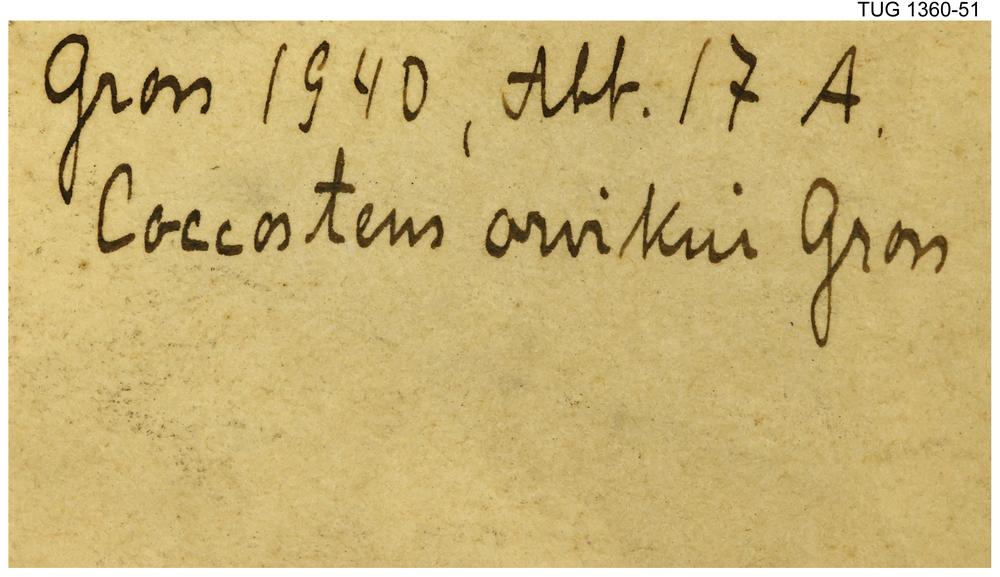 TUG 1360-51
Gross 1940, Abb. 17 A.
Coccosteus orvikui Gross